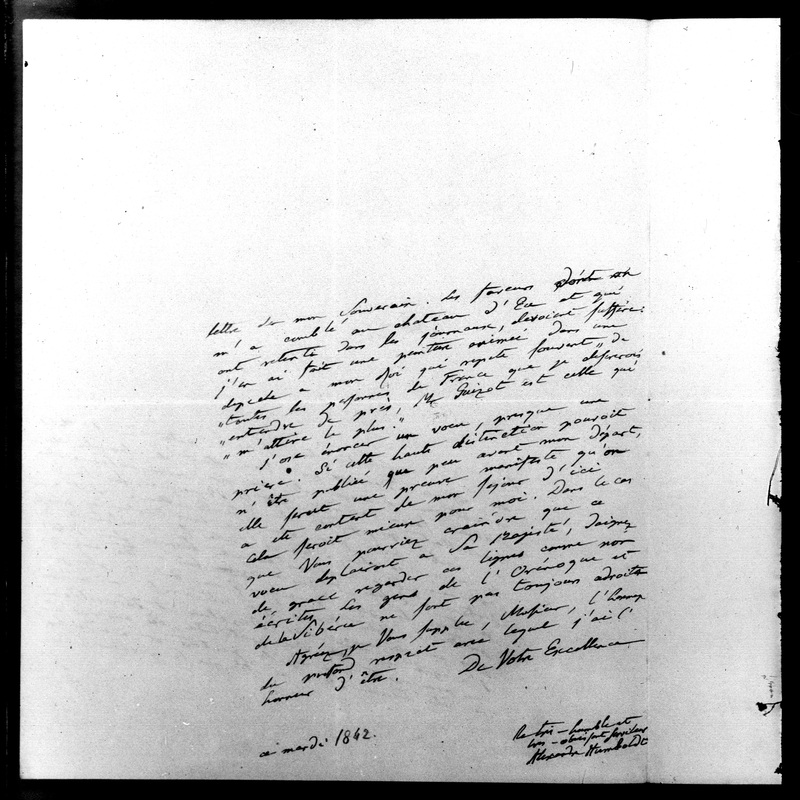 lettre de mon Souverain. Les faveurs dont on
m'a comblé au chateau d'Eu et qui
ont retenti dans les journaux, devoient suffire:
j'en ai fait une peinture animée dans une
depeche a mon Roi qui repete souvent „de
„toutes les personnes de France que je desirerois
„entendre de près, Mr Guizot est celle qui
„m'attire le plus."
J'ose énoncer un voeu, presque une
priere. Si cette haute distinction pouvoit
n'être publiée que peu avant mon départ,
elle seroit une preuve manifeste qu'on
a été content de mon sejour d'ici
cela seroit mieux pour moi. Dans le cas
que Vous pourriez craindre que ce
voeu deplairoit a Sa Majesté, daignez
de grace regarder ces lignes comme non
écrites. Les gens de l'Orénoque et
de la Sibérie ne sont pas toujours adroits
Agréez, je Vous supplie, Monsieur, l'hommage
du profond respect avec lequel j'ai l'
honneur d'être.
De Votre Excellence
ce mardi 1842.
le très-humble et
très-obéissant serviteur
Alexandre Humboldt